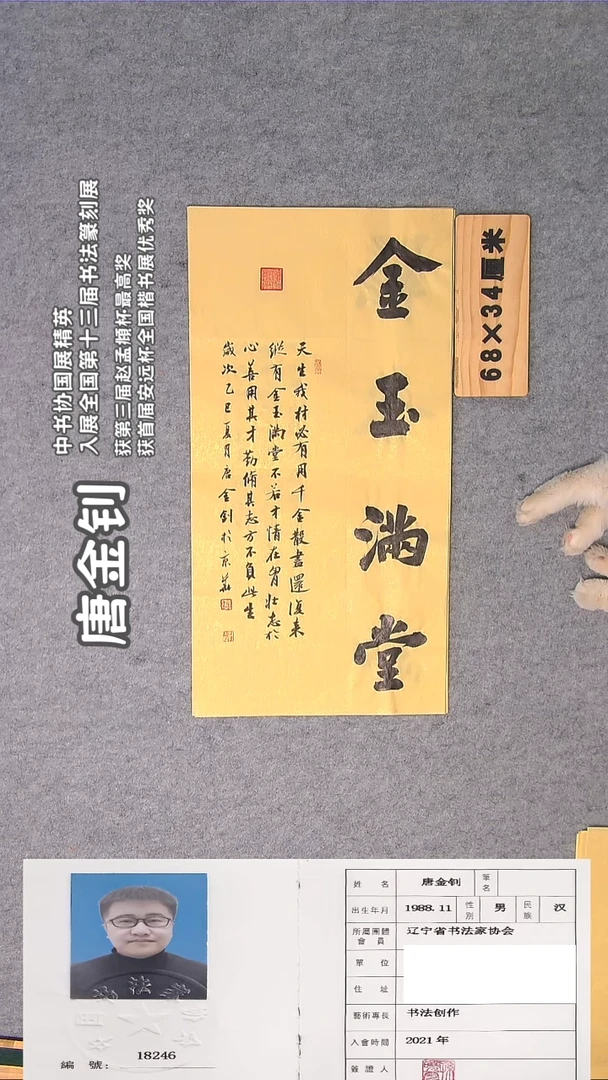 中书协国展精英
入展全国第十三届书法篆刻展
获第三届赵孟頫杯最高奖
获首届安远杯全国楷书展优秀奖
唐金钊
金玉满堂
天生我材必有用千金散尽還復来
纵有金玉满堂不若才情在胸壮志於
心善用其才勤脩其志方不負此生
歲次乙巳夏月唐金钊於京華
68×34厘米
姓 名 唐金钊 筆名
出生年月 1988.11 性别 男 民族 汉
所屬團體會員 辽宁省书法家协会
單 位
住 址
藝術專長 书法创作
入會時間 2021年
簽證人
編 號： 18246